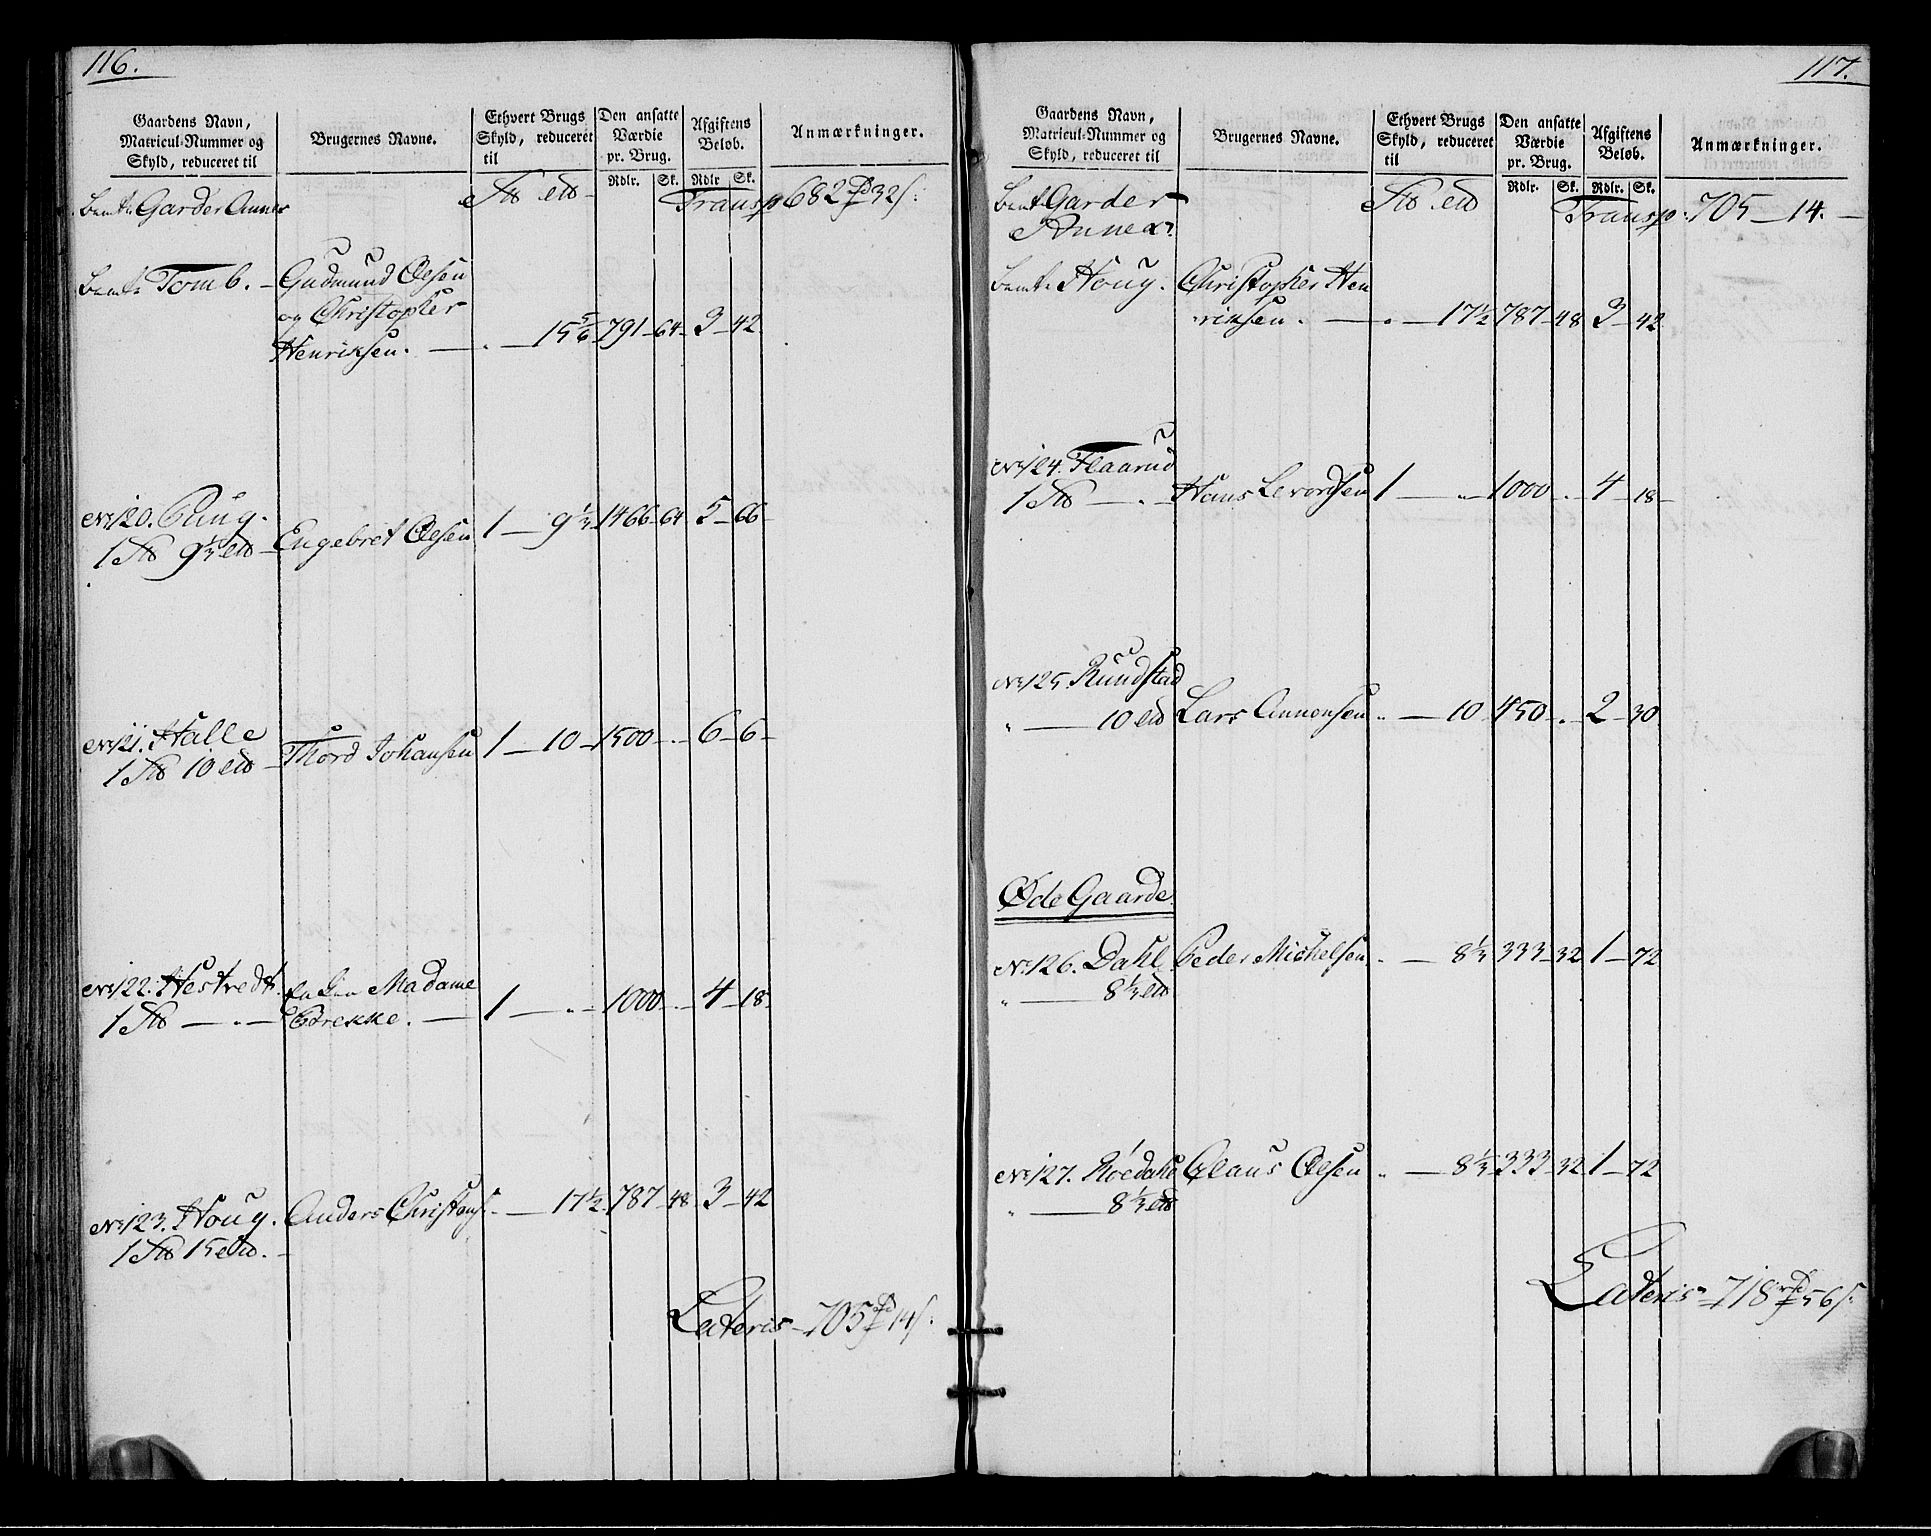 116.
Gaardens Navn, Matricul-Nummer og Skyld, reduceret til
Brugernes Navne.
Ethvert Brugs Skyld, reduceret til
Den ansatte Værdie pr. Brug.
Afgiftens Beløb.
Anmærkninger.
Rdlr. Sk. Rdlr Sk.
Garder Annex Transp 682 32
Tomb. Gudmund Olesen
og Christopher
Henriksen. 15 5/6 791 64 3 42
No 120. Huug.
1 9 1/3 Engebret Olesen 1 9 1/3 1466 64 5 66
No 121. Halle
1 10 Thord Johansen 1 10 1500 6 6
No 122. Hestvedt. Madame
1 Brekke. 1 1000 4 18
No 123. Houg. Anders Christens. 17 1/2 787 48 3 42
1 15
Lateris 705 14
117.
Gaardens Navn, Matricul-Nummer og Skyld, reduceret til
Brugernes Navne.
Ethvert Brugs Skyld, reduceret til
Den ansatte Værdie pr. Brug.
Afgiftens Beløb.
Anmærkninger.
Rdlr. Sk. Rdlr. Sk.
Garder Transp: 705 14.
Annex
Houg. Christopher Hen
riksen. 17 1/2 787 48 3 42
No 124. Flaarud
1 Hans Levordsen 1 1000 4 18
No 125. Rundstad
10 Lars Annonsen 10 450 2 30
Øde Gaarde.
No 126. Dahl Peder Michelsen 8 1/3 333 32 1 72
8 1/3
No 127. Röedahl Claus Olesen 8 1/3 333 32 1 72
8 1/3
Lateris 718 56